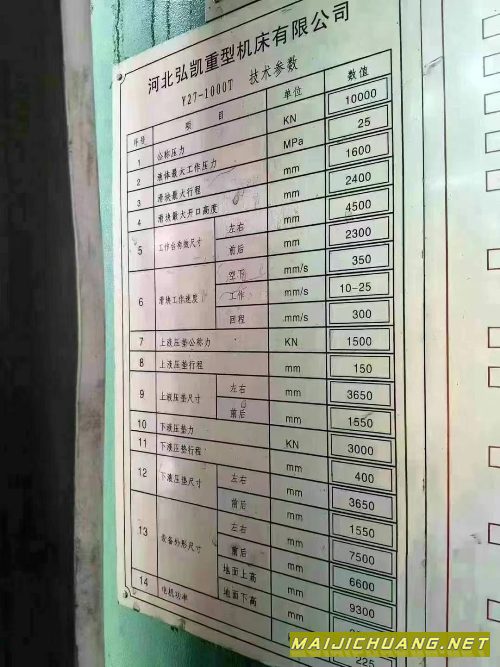 河北弘凯重型机床有限公司
Y27-1000T 技术参数
序号 项目 单位 数值
1 公称压力 KN 10000
2 液体最大工作压力 MPa 25
3 滑块最大行程 mm 1600
4 滑块最大开口高度 mm 2400
5 工作台有效尺寸 左右 mm 4500
前后 mm 2300
6 滑块工作速度 空下 mm/s 350
工作 mm/s 10-25
回程 mm/s 300
7 上液压垫公称力 KN 1500
8 上液压垫行程 mm 150
9 上液压垫尺寸 左右 mm 3650
前后 mm 1550
10 下液压垫力 KN 3000
11 下液压垫行程 mm 400
12 下液压垫尺寸 左右 mm 3650
前后 mm 1550
13 装备外形尺寸 左右 mm 7500
前后 mm 6600
地面上高 mm 9300
地面下高
14 电机功率 225
MAIJICHUANG.NET